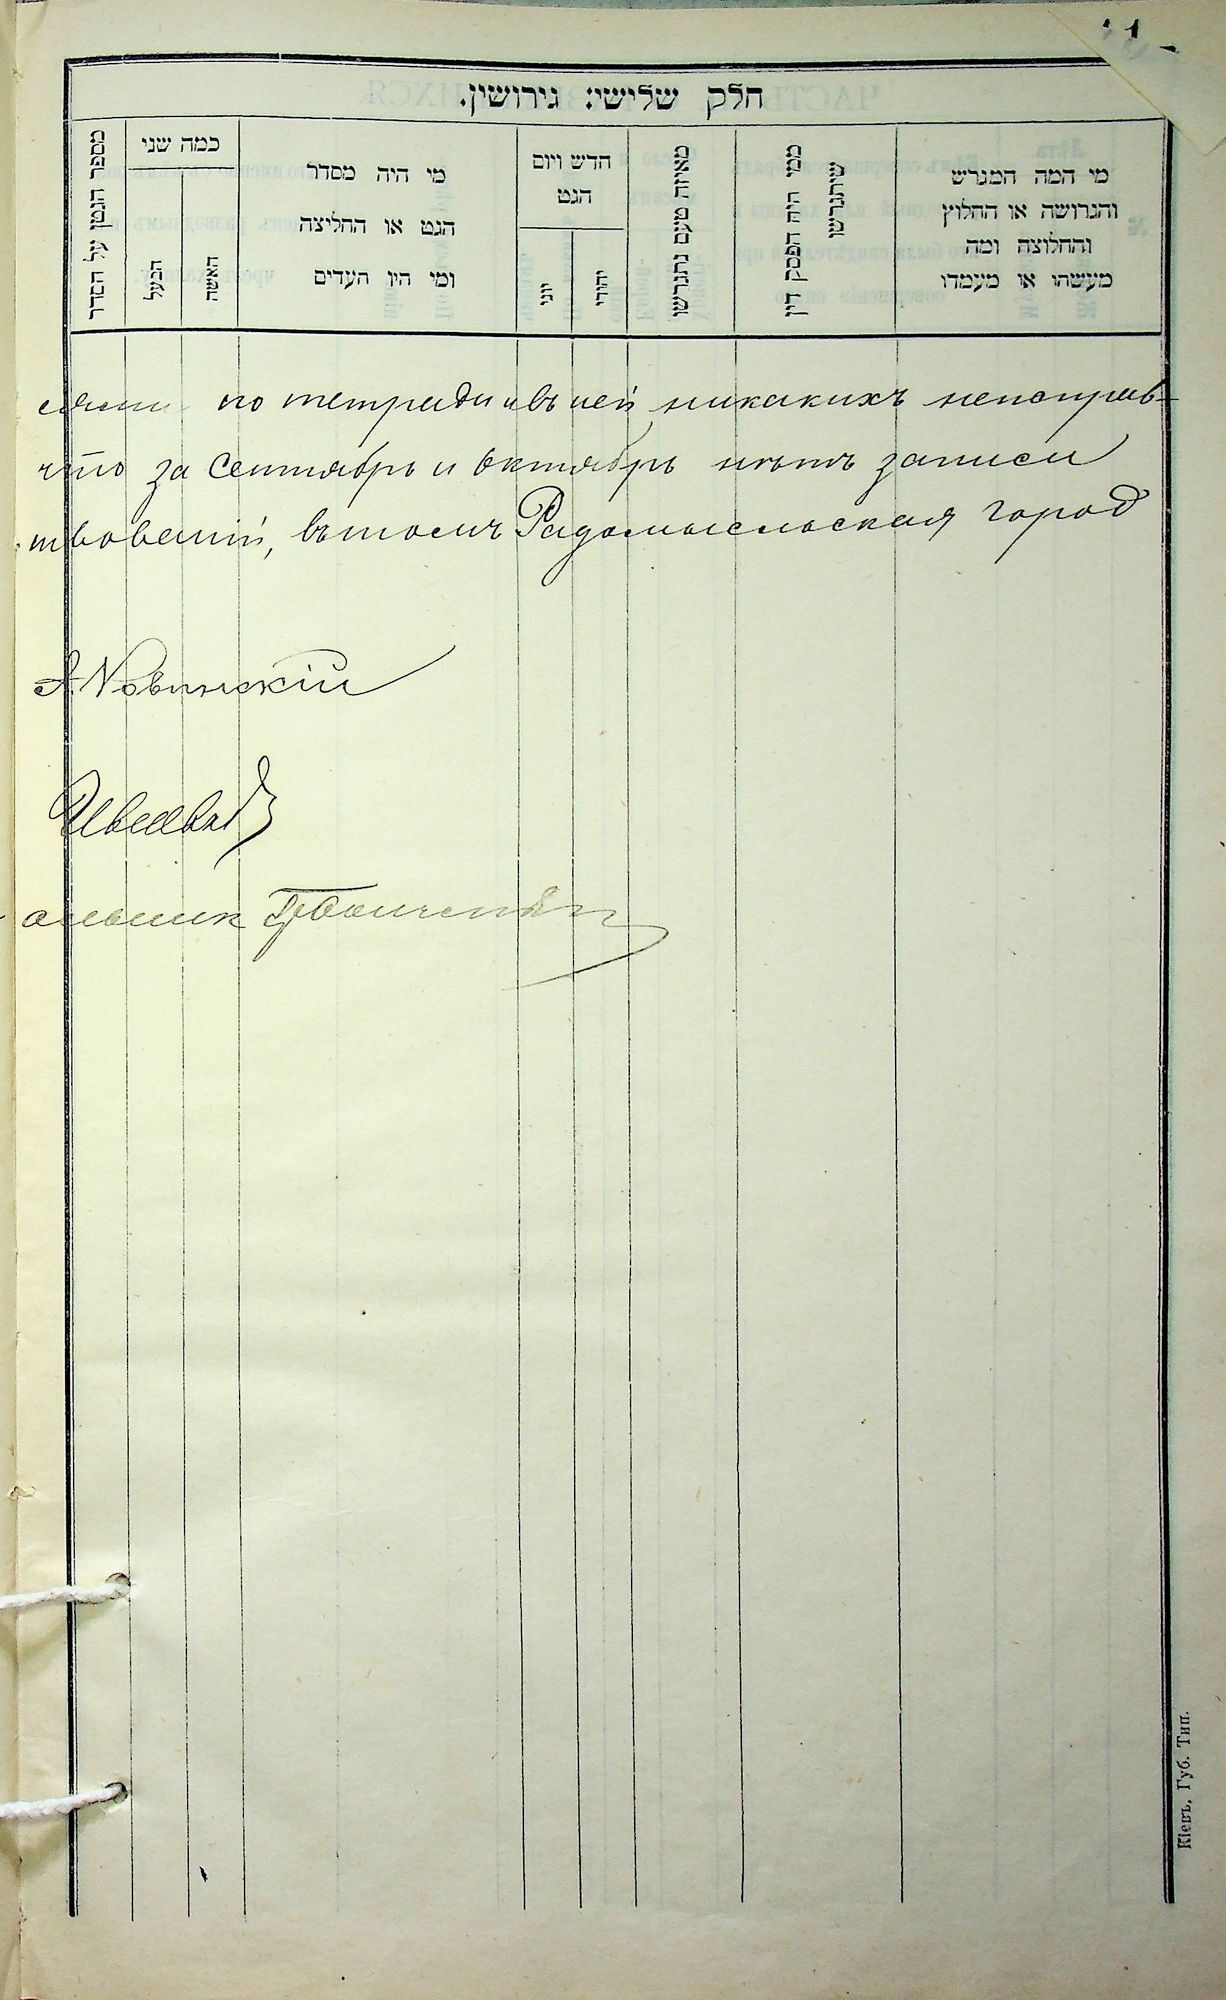 חלק שלישי: גירושין.
מספר הגטין על הסדר
כמה שני
הבעל
האשה
מי היה מסדר
הגט או החליצה
ומי היו העדים
חדש ויום
הגט
יוני
יהודי
מאיזה טעם נתגרשו
ממי היה הפסק דין
שיתגרשו
מי המה המגרש
והגרושה או החלוץ
והחלוצה ומה
מעשהו או מעמדו
по тетради и въ ней никакихъ неисправ-
что за Сентябрь и Октябрь нѣтъ записи
въ томъ Радомысльская город
А. Новинскій
Кіевъ, Губ. Тип.